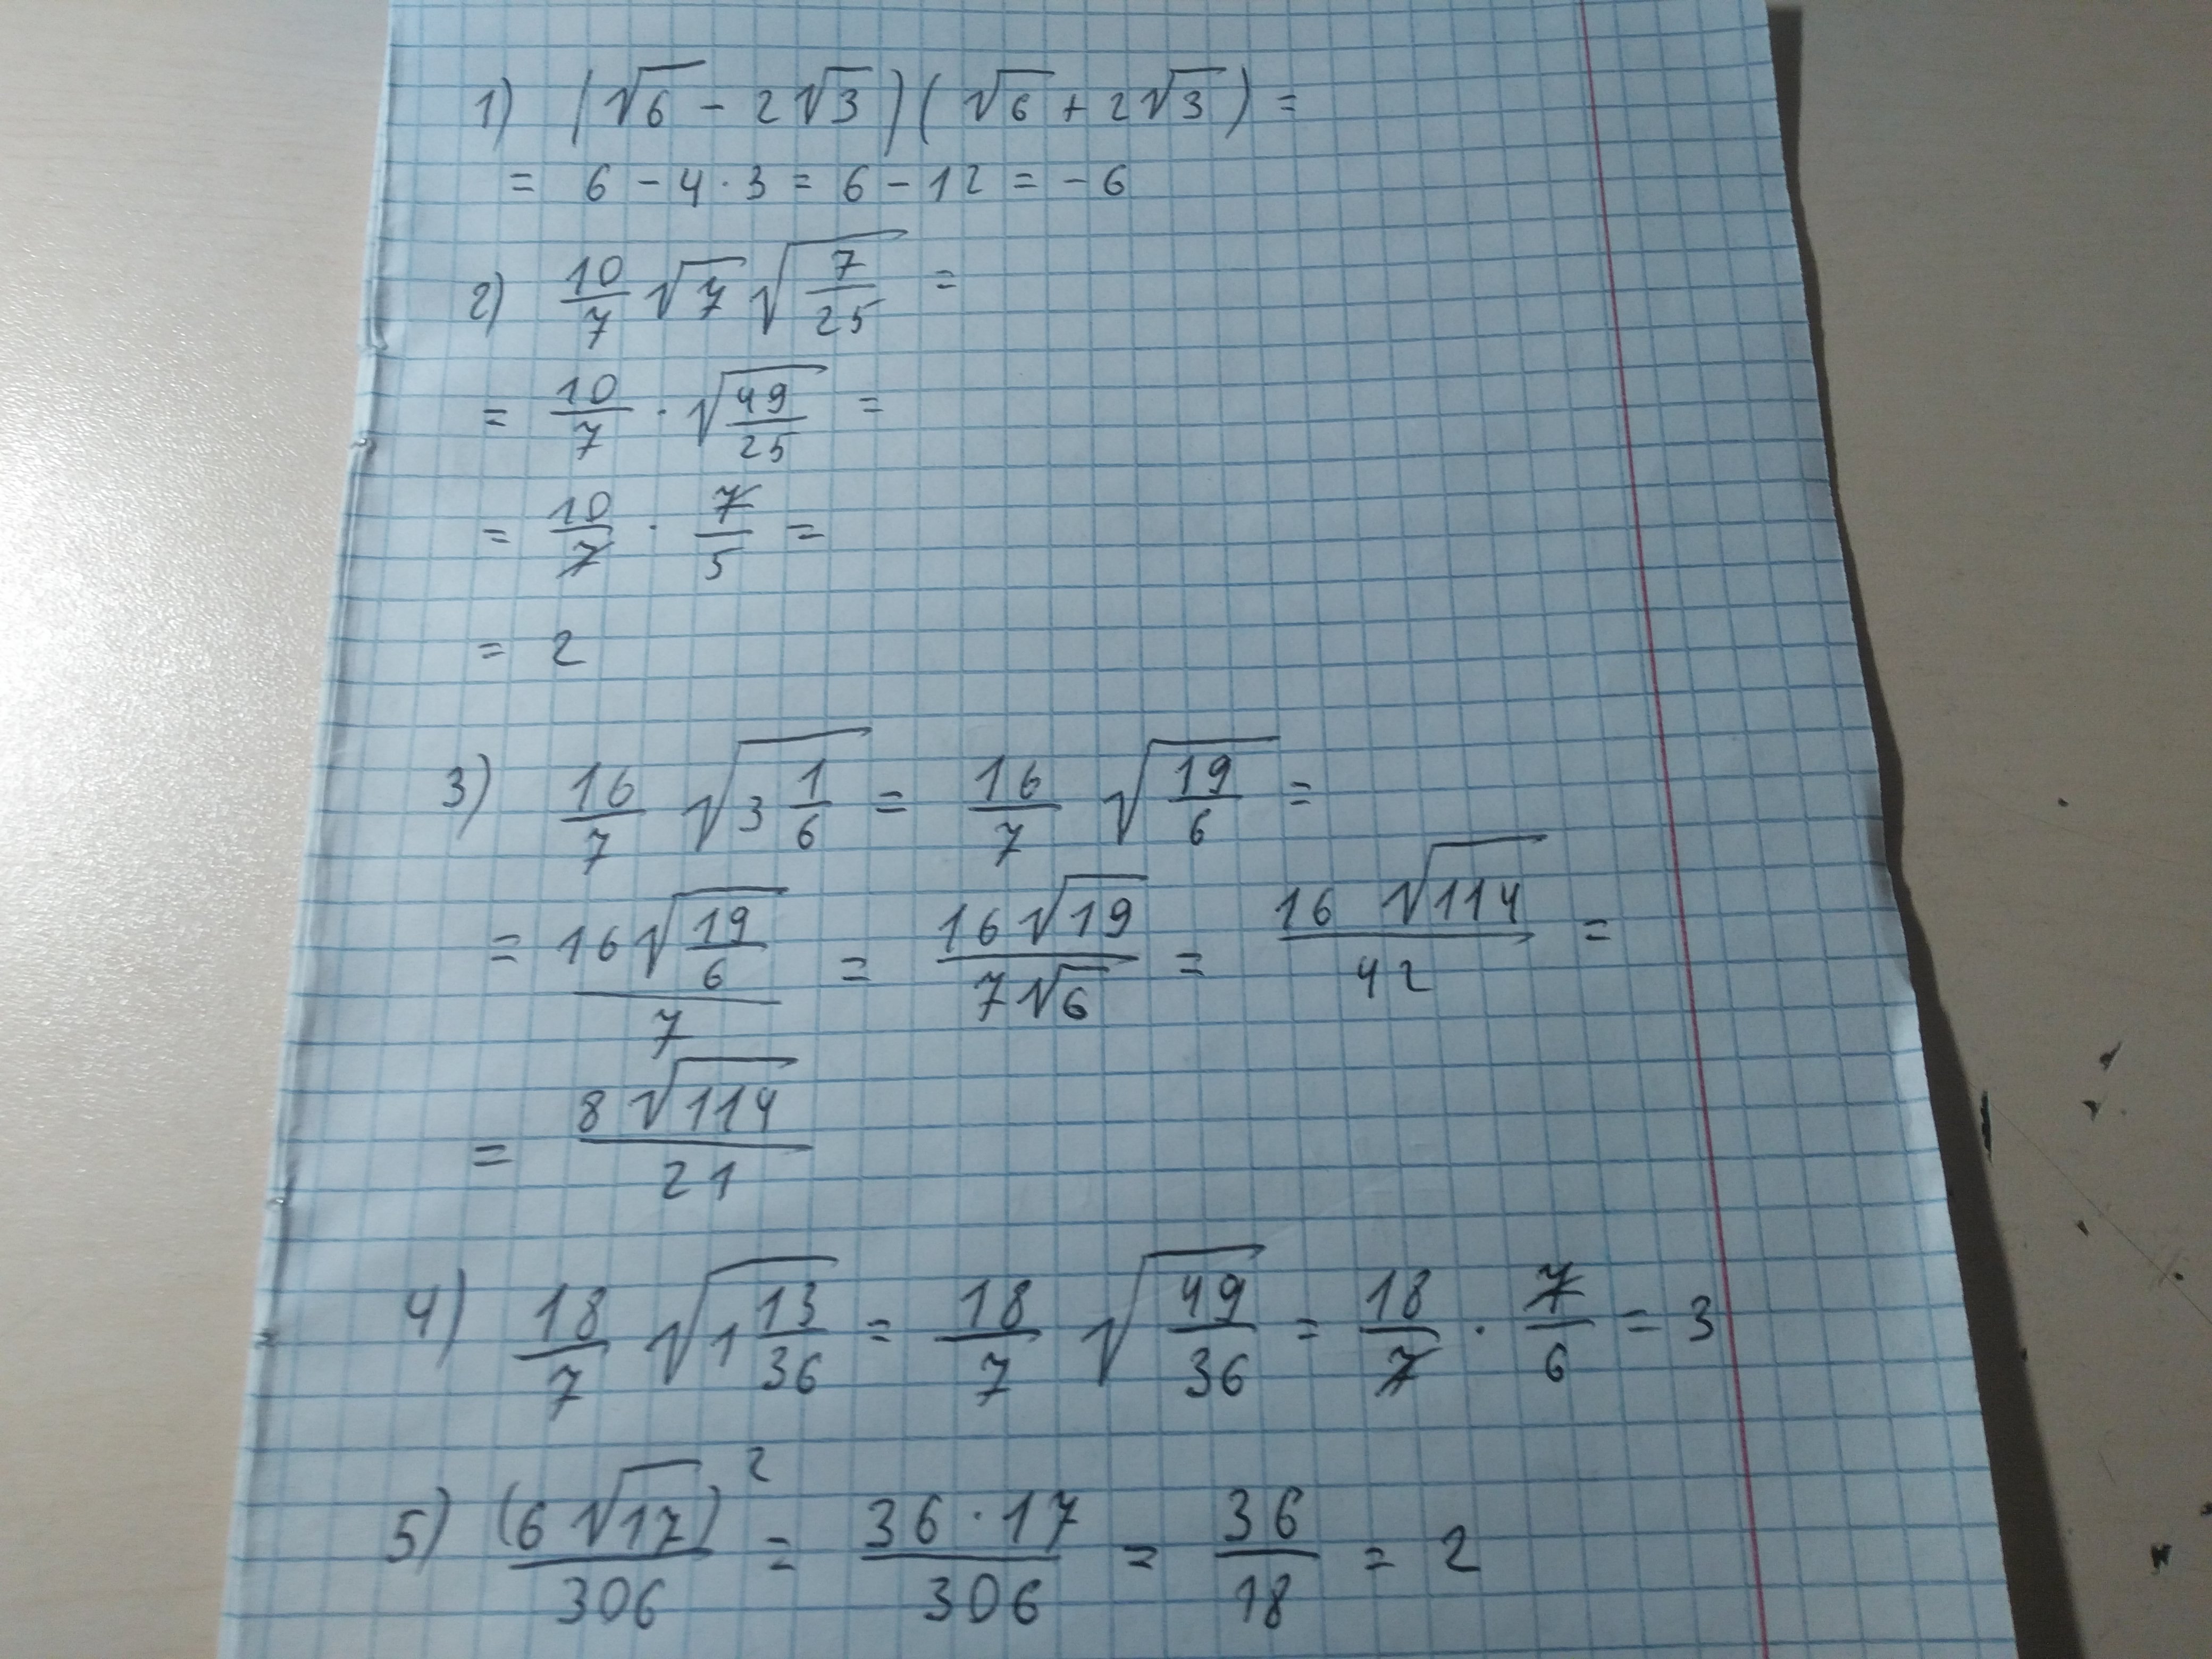 1) (√6 - 2√3)(√6 + 2√3) =
= 6 - 4 · 3 = 6 - 12 = -6
2) 10/7 √7 √(7/25) =
= 10/7 · √(49/25) =
= 10/7 · 7/5 =
= 2
3) 16/7 √(3 1/6) = 16/7 √(19/6) =
= 16√(19/6)/7 = 16√19/7√6 = 16√114/42 =
= 8√114/21
4) 18/7 √(1 13/36) = 18/7 √(49/36) = 18/7 · 7/6 = 3
5) (6√17)²/306 = 36 · 17/306 = 36/18 = 2